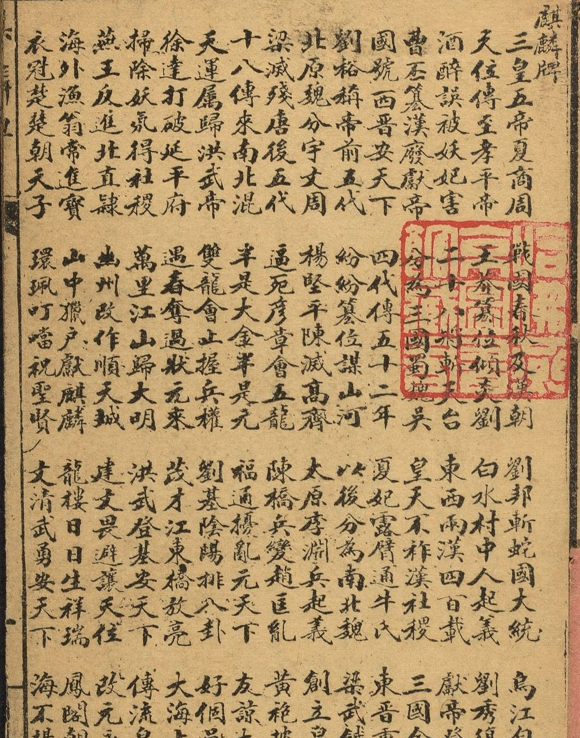 麒麟牌
三皇五帝夏商周 戰國春秋及漢朝 劉邦斬蛇國大統 烏江
天位傳至孝平帝 王莽篡位傾炎劉 白水村中人起義 劉秀復
酒醉誤被妖妃害 二十八將斬天台 東西兩漢四百載 獻帝
曹丕篡漢廢獻帝 分為三國蜀魏吳 皇天不祚漢社稷 三國
國號西晉安天下 四代傳五十二年 夏妃露臂通牛氏 東晉
劉裕稱帝前五代 紛紛篡位謀山河 以後分為南北魏 梁武
北原魏分宇文周 楊堅平陳滅高齊 太原李淵兵起義 創立
梁滅殘唐後五代 逼死彥章會五龍 陳橋兵變趙匡亂 黃袍
十八傳來南北混 半是大金半是元 福通擾亂元天下 友諒
天運屬歸洪武帝 雙龍會上握兵權 劉基陰陽排八卦 好個
徐達打破延平府 遇春奪過狀元來 茂才江東橋救亮 大海
掃除妖氛得社稷 萬里江山歸大明 洪武登基安天下 傳流
燕王反進北直隸 幽州改作順天城 建文畏避讓天位 改元
海外漁翁常進寶 山中獵戶獻麒麟 龍樓日日生祥瑞 鳳閣朝
衣冠楚楚朝天子 環珮叮噹祝聖賢 文清武勇安天下 海不揚